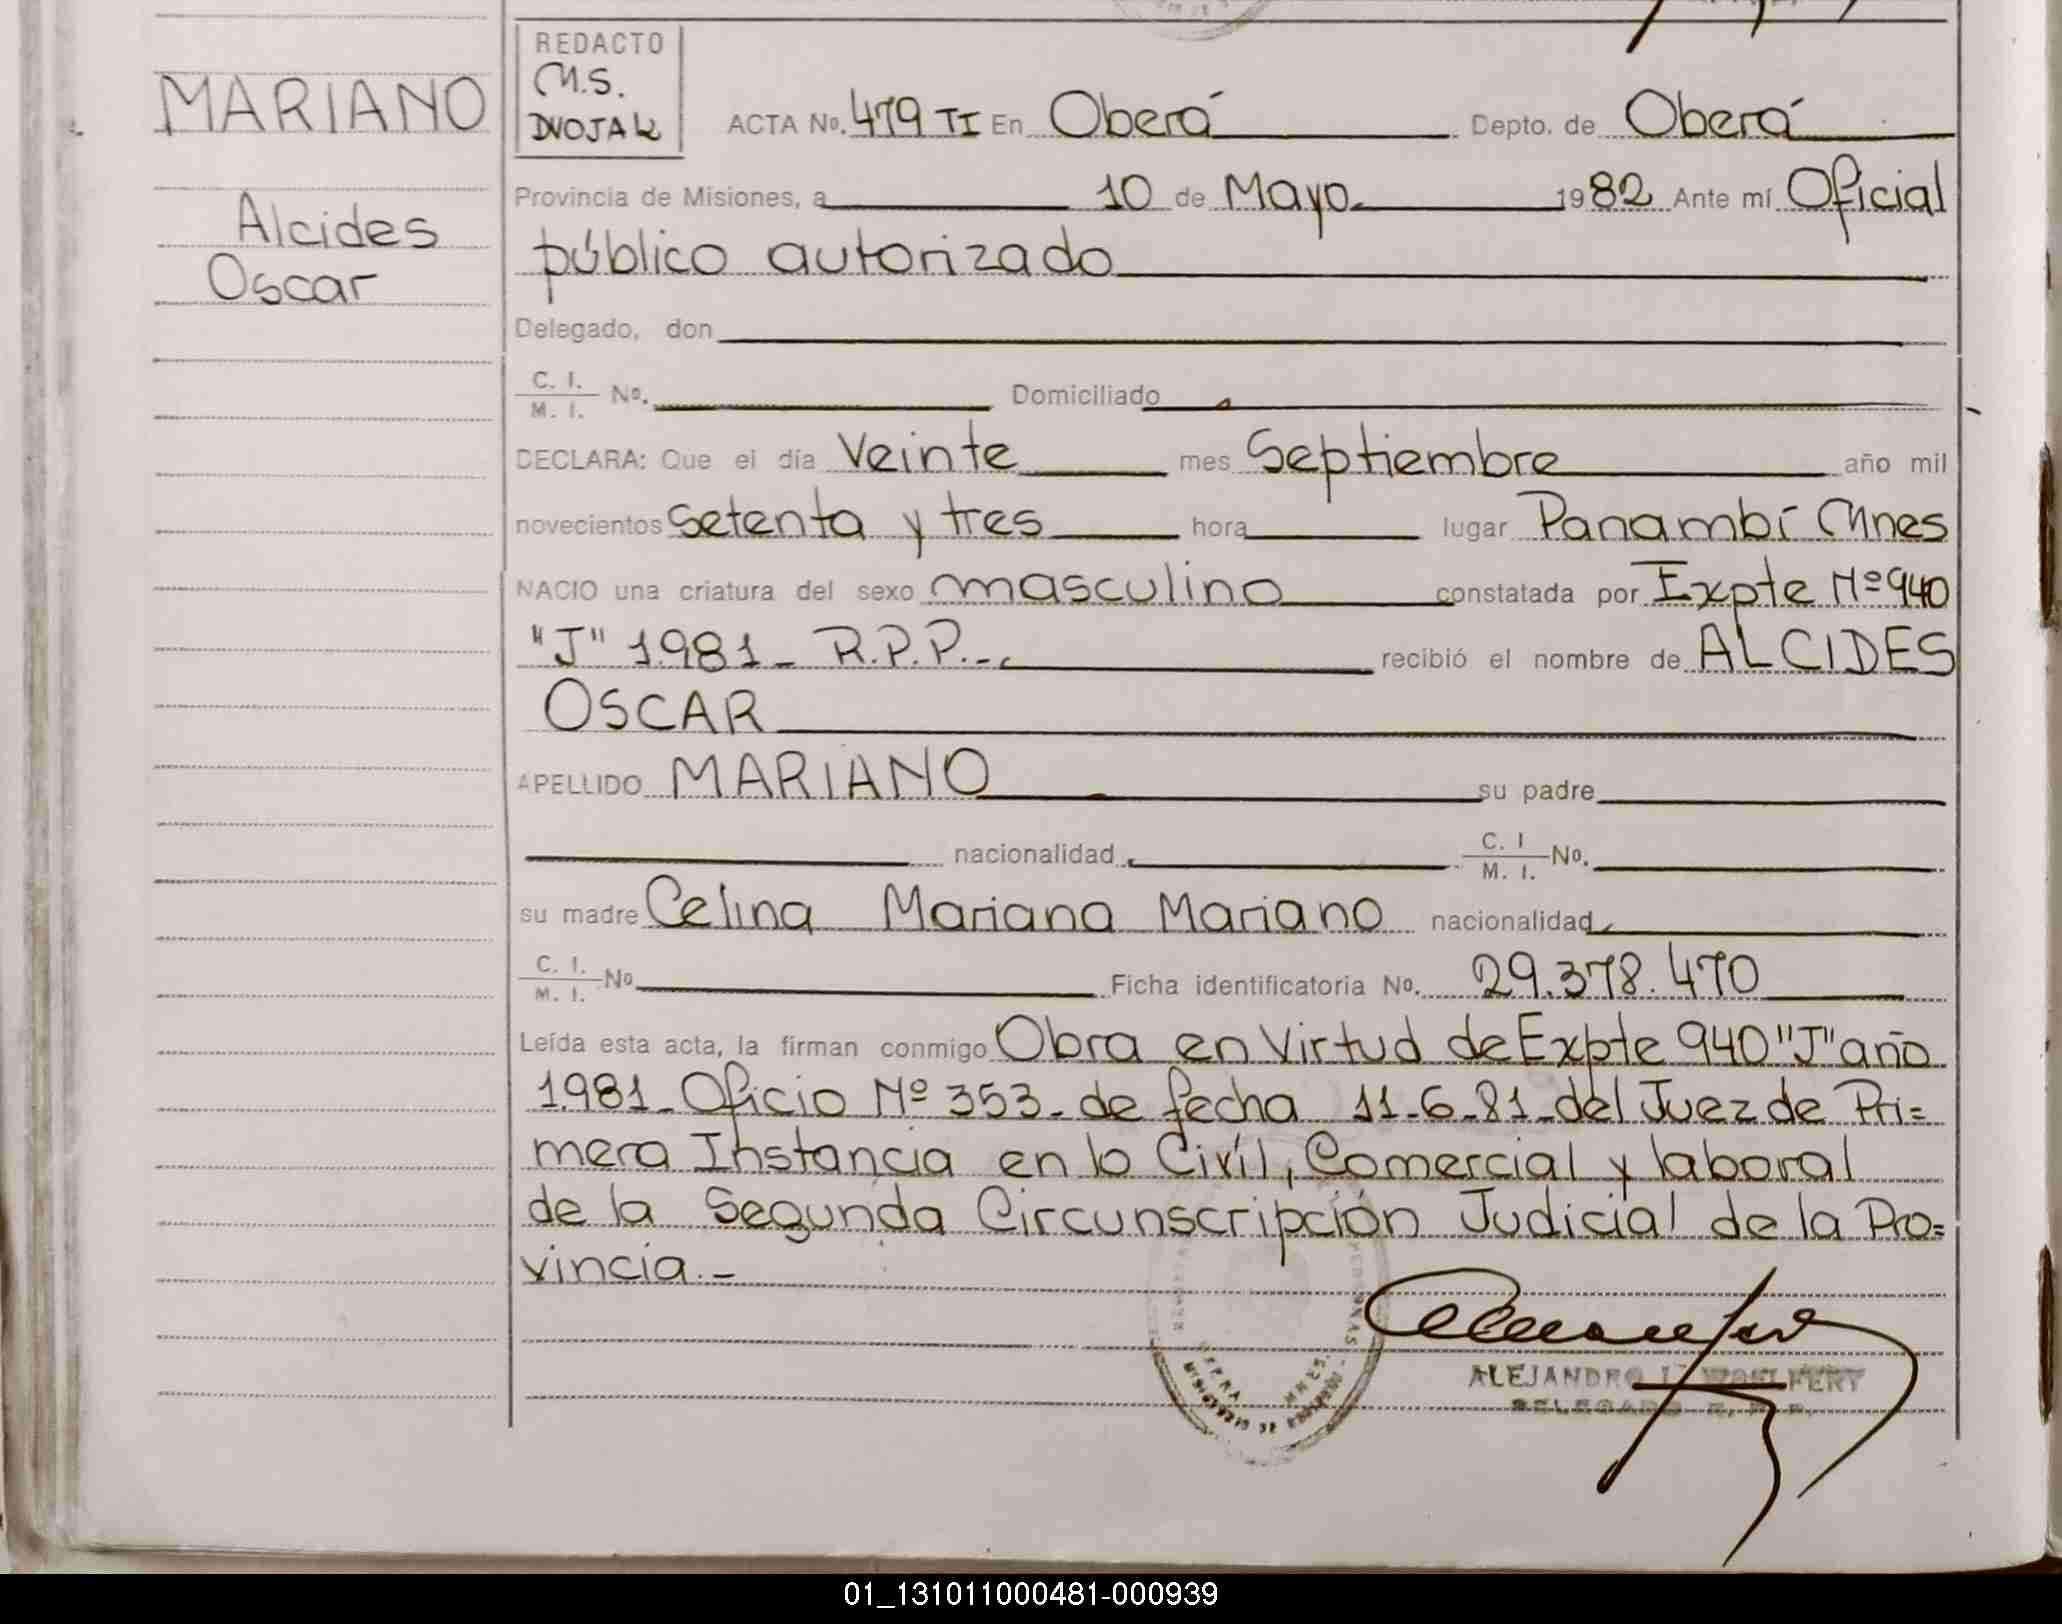 REDACTO
M.S.
DVOJAK
MARIANO
Alcides
Oscar
ACTA No. 479 TI En Oberá Depto. de Oberá
Provincia de Misiones, a 10 de Mayo. 1982 Ante mí Oficial
público autorizado
Delegado, don
C. I. / M. I. No. Domiciliado
DECLARA: Que el día Veinte mes Septiembre año mil
novecientos setenta y tres hora lugar Panambí Mnes
NACIO una criatura del sexo masculino constatada por Expte Nº 940
"J" 1981 - R.P.P.-. recibió el nombre de ALCIDES
OSCAR
APELLIDO MARIANO su padre
nacionalidad C. I / M. I. No.
su madre Celina Mariana Mariano nacionalidad
C. I. / M. I. No Ficha identificatoria No. 29.378.470
Leída esta acta, la firman conmigo Obra en Virtud de Expte 940 "J" año
1981_ Oficio Nº 353_ de fecha 11-6-81_del Juez de Pri=
mera Instancia en lo Civíl, Comercial y laboral
de la Segunda Circunscripción Judicial de la Pro=
vincia.-
MINISTERIO DE GOBIERNO
ALEJANDRO
DELEGADO R. P. P.
01_131011000481-000939